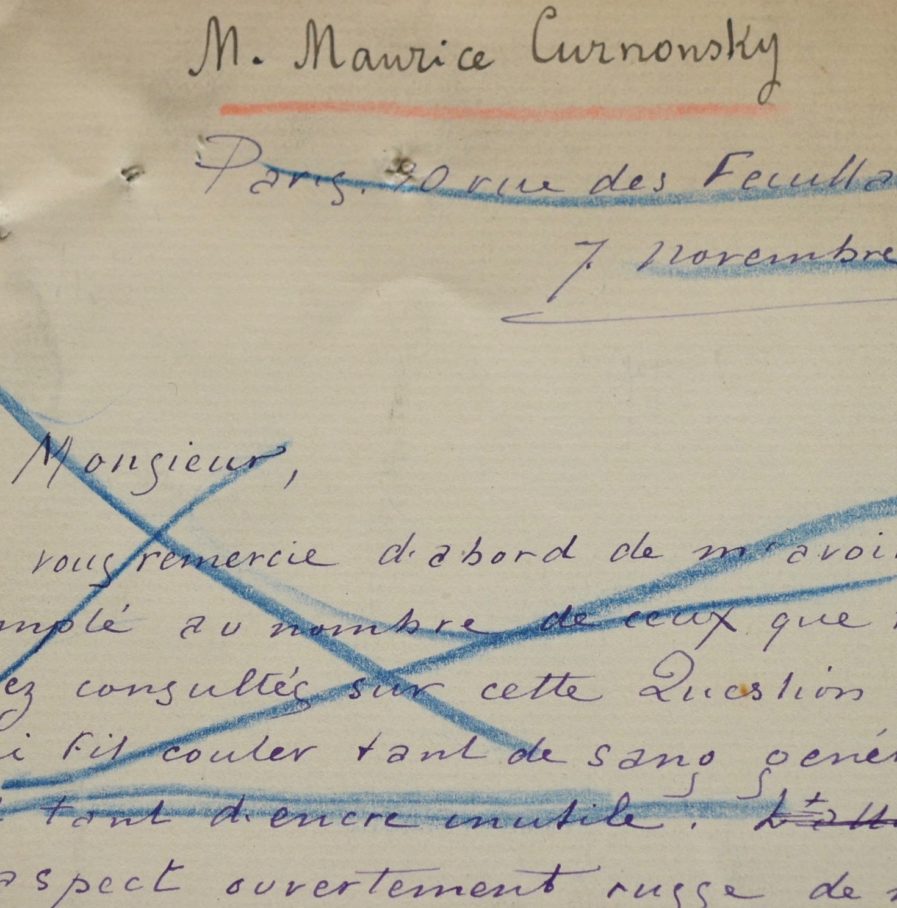 M. Maurice Curnonsky
Paris. 90 rue des Feuilla
7 novembre
Monsieur,
vous remercie d'abord de m'avoi
mplé au nombre de ceux que
ez consultés sur cette Question
i fit couler tant de sang géné
tant d'encre inutile.
aspect ouvertement russe de